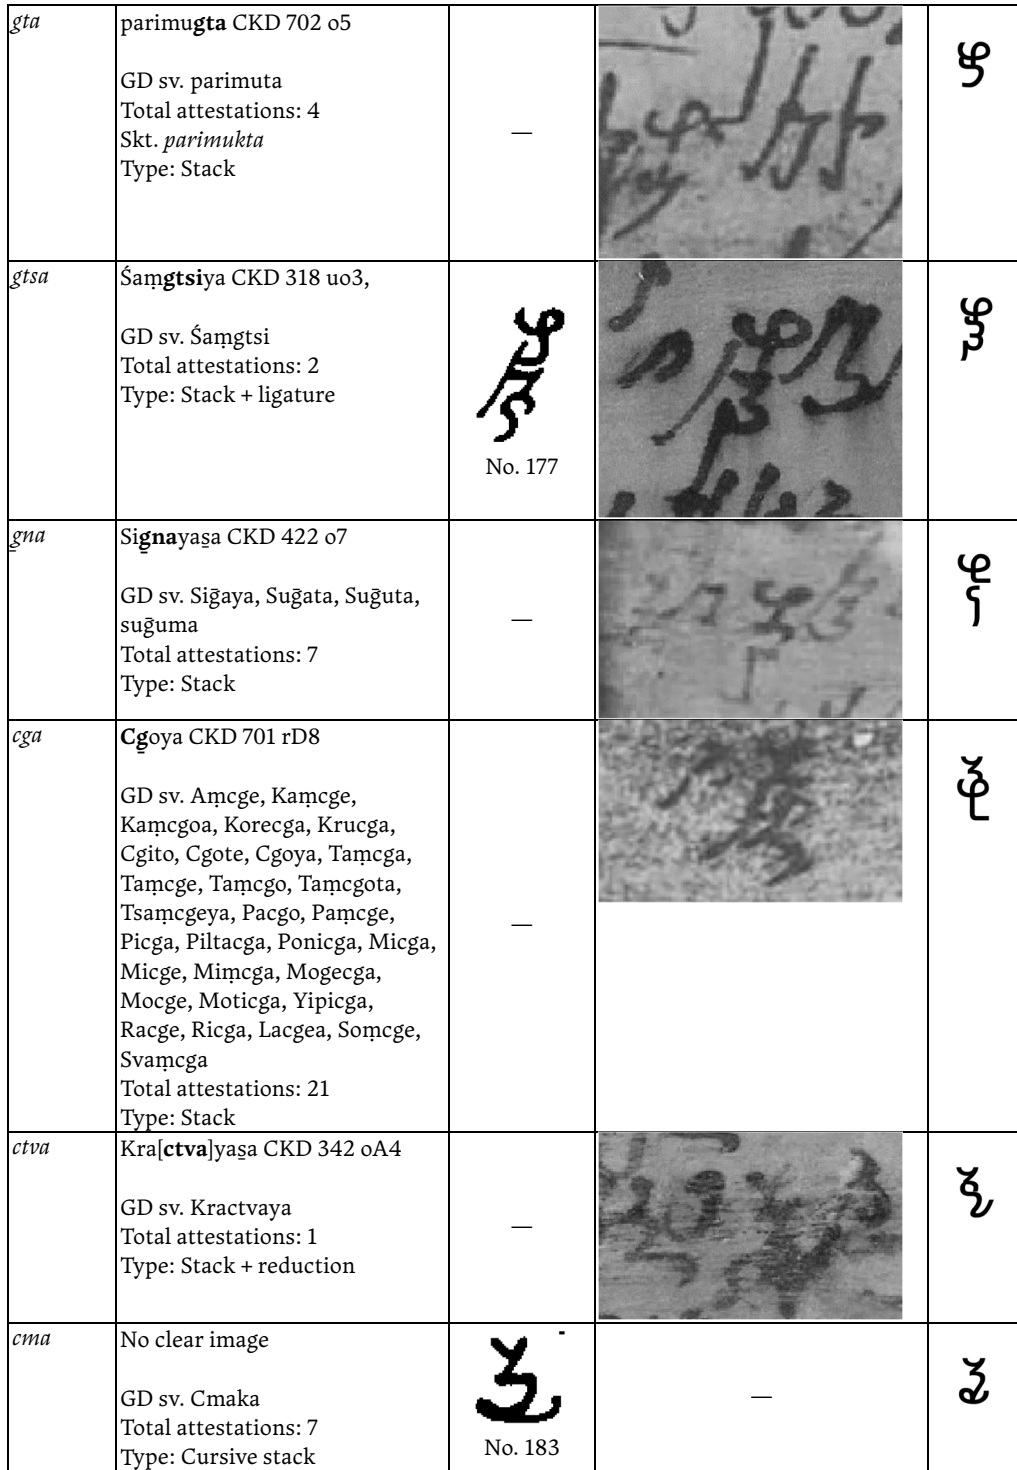 gta
parimugta CKD 702 o5
GD sv. parimuta
Total attestations: 4
Skt. parimukta
Type: Stack
—
gtsa
Śaṃgtsiya CKD 318 uo3,
GD sv. Śaṃgtsi
Total attestations: 2
Type: Stack + ligature
No. 177
g̱na
Sig̱nayas̱a CKD 422 o7
GD sv. Siḡaya, Suḡata, Suḡuta,
suḡuma
Total attestations: 7
Type: Stack
—
cga
Cg̱oya CKD 701 rD8
GD sv. Aṃcge, Kaṃcge,
Kaṃcgoa, Korecga, Krucga,
Cgito, Cgote, Cgoya, Taṃcga,
Taṃcge, Taṃcgo, Taṃcgota,
Tsaṃcgeya, Pacgo, Paṃcge,
Picga, Piltacga, Ponicga, Micga,
Micge, Miṃcga, Mogecga,
Mocge, Moticga, Yipicga,
Racge, Ricga, Lacgea, Soṃcge,
Svaṃcga
Total attestations: 21
Type: Stack
—
ctva
Kra[ctva]yas̱a CKD 342 oA4
GD sv. Kractvaya
Total attestations: 1
Type: Stack + reduction
—
cma
No clear image
GD sv. Cmaka
Total attestations: 7
Type: Cursive stack
No. 183
—